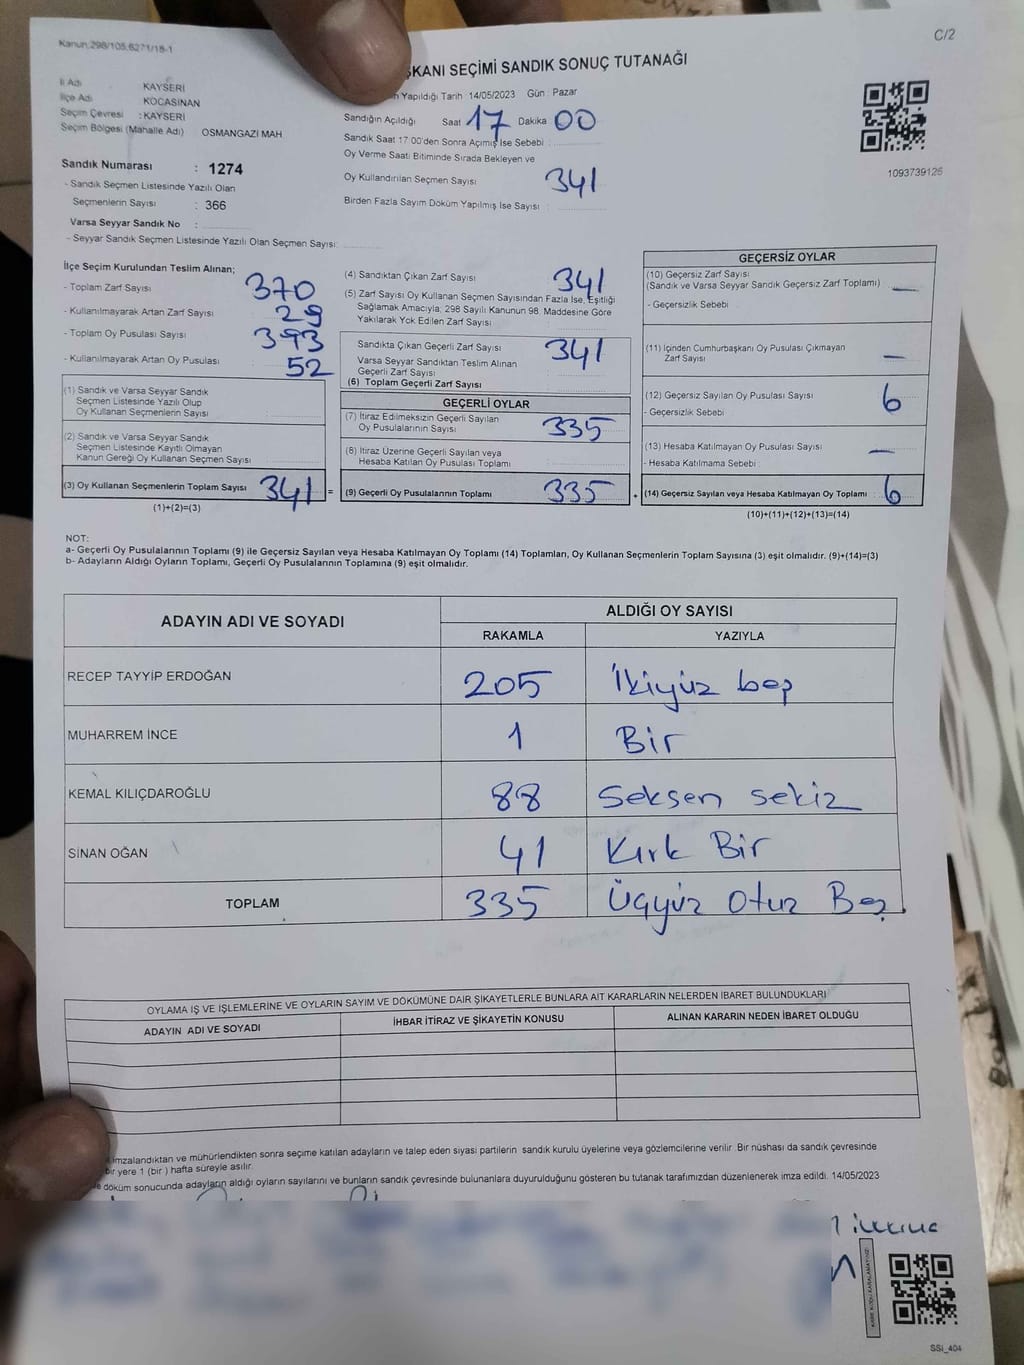 Kanun:298/105,6271/18-1
C/2
ŞKANI SEÇİMİ SANDIK SONUÇ TUTANAĞI
İl Adı KAYSERİ
İlçe Adı KOCASİNAN
Seçim Çevresi : KAYSERİ
Seçim Bölgesi (Mahalle Adı) OSMANGAZİ MAH
Sandık Numarası : 1274
- Sandık Seçmen Listesinde Yazılı Olan
Seçmenlerin Sayısı : 366
Varsa Seyyar Sandık No :
- Seyyar Sandık Seçmen Listesinde Yazılı Olan Seçmen Sayısı:
Yapıldığı Tarih 14/05/2023 Gün : Pazar
Sandığın Açıldığı Saat 17 Dakika 00
Sandık Saat 17 00'den Sonra Açımış İse Sebebi :
Oy Verme Saati Bitiminde Sırada Bekleyen ve
Oy Kullandırılan Seçmen Sayısı 341
Birden Fazla Sayım Döküm Yapılmış İse Sayısı :
1093739126
İlçe Seçim Kurulundan Teslim Alınan;
- Toplam Zarf Sayısı 370
- Kullanılmayarak Artan Zarf Sayısı 29
- Toplam Oy Pusulası Sayısı 393
- Kullanılmayarak Artan Oy Pusulası 52
(1) Sandık ve Varsa Seyyar Sandık
Seçmen Listesinde Yazılı Olup
Oy Kullanan Seçmenlerin Sayısı
(2) Sandık ve Varsa Seyyar Sandık
Seçmen Listesinde Kayıtlı Olmayan
Kanun Gereği Oy Kullanan Seçmen Sayısı
(3) Oy Kullanan Seçmenlerin Toplam Sayısı 341 =
(1)+(2)=(3)
(4) Sandıktan Çıkan Zarf Sayısı 341
(5) Zarf Sayısı Oy Kullanan Seçmen Sayısından Fazla İse, Eşitliği
Sağlamak Amacıyla, 298 Sayılı Kanunun 98. Maddesine Göre
Yakılarak Yok Edilen Zarf Sayısı
Sandıkta Çıkan Geçerli Zarf Sayısı 341
Varsa Seyyar Sandıktan Teslim Alınan
Geçerli Zarf Sayısı
(6) Toplam Geçerli Zarf Sayısı
GEÇERLİ OYLAR
(7) İtiraz Edilmeksizin Geçerli Sayılan
Oy Pusulalarının Sayısı 335
(8) İtiraz Üzerine Geçerli Sayılan veya
Hesaba Katılan Oy Pusulası Toplamı
(9) Geçerli Oy Pusulalarının Toplamı 335 +
GEÇERSİZ OYLAR
(10) Geçersiz Zarf Sayısı
(Sandık ve Varsa Seyyar Sandık Geçersiz Zarf Toplamı) —
- Geçersizlik Sebebi
(11) İçinden Cumhurbaşkanı Oy Pusulası Çıkmayan
Zarf Sayısı —
(12) Geçersiz Sayılan Oy Pusulası Sayısı 6
- Geçersizlik Sebebi
(13) Hesaba Katılmayan Oy Pusulası Sayısı —
- Hesaba Katılmama Sebebi
(14) Geçersiz Sayılan veya Hesaba Katılmayan Oy Toplamı : 6
(10)+(11)+(12)+(13)=(14)
NOT:
a- Geçerli Oy Pusulalarının Toplamı (9) ile Geçersiz Sayılan veya Hesaba Katılmayan Oy Toplamı (14) Toplamları, Oy Kullanan Seçmenlerin Toplam Sayısına (3) eşit olmalıdır. (9)+(14)=(3)
b- Adayların Aldığı Oyların Toplamı, Geçerli Oy Pusulalarının Toplamına (9) eşit olmalıdır.
ADAYIN ADI VE SOYADI ALDIĞI OY SAYISI
RAKAMLA YAZIYLA
RECEP TAYYİP ERDOĞAN 205 İkiyüz beş
MUHARREM İNCE 1 Bir
KEMAL KILIÇDAROĞLU 88 Seksen sekiz
SİNAN OĞAN 41 Kırk Bir
TOPLAM 335 Üçyüz Otuz Beş.
OYLAMA İŞ VE İŞLEMLERİNE VE OYLARIN SAYIM VE DÖKÜMÜNE DAİR ŞİKAYETLERLE BUNLARA AİT KARARLARIN NELERDEN İBARET BULUNDUKLARI
ADAYIN ADI VE SOYADI İHBAR İTİRAZ VE ŞİKAYETİN KONUSU ALINAN KARARIN NEDEN İBARET OLDUĞU
imzalandıktan ve mühürlendikten sonra seçime katılan adayların ve talep eden siyasi partilerin sandık kurulu üyelerine veya gözlemcilerine verilir. Bir nüshası da sandık çevresinde
bir yere 1 (bir ) hafta süreyle asılır.
döküm sonucunda adayların aldığı oyların sayılarını ve bunların sandık çevresinde bulunanlara duyurulduğunu gösteren bu tutanak tarafımızdan düzenlenerek imza edildi. 14/05/2023
SSİ_404